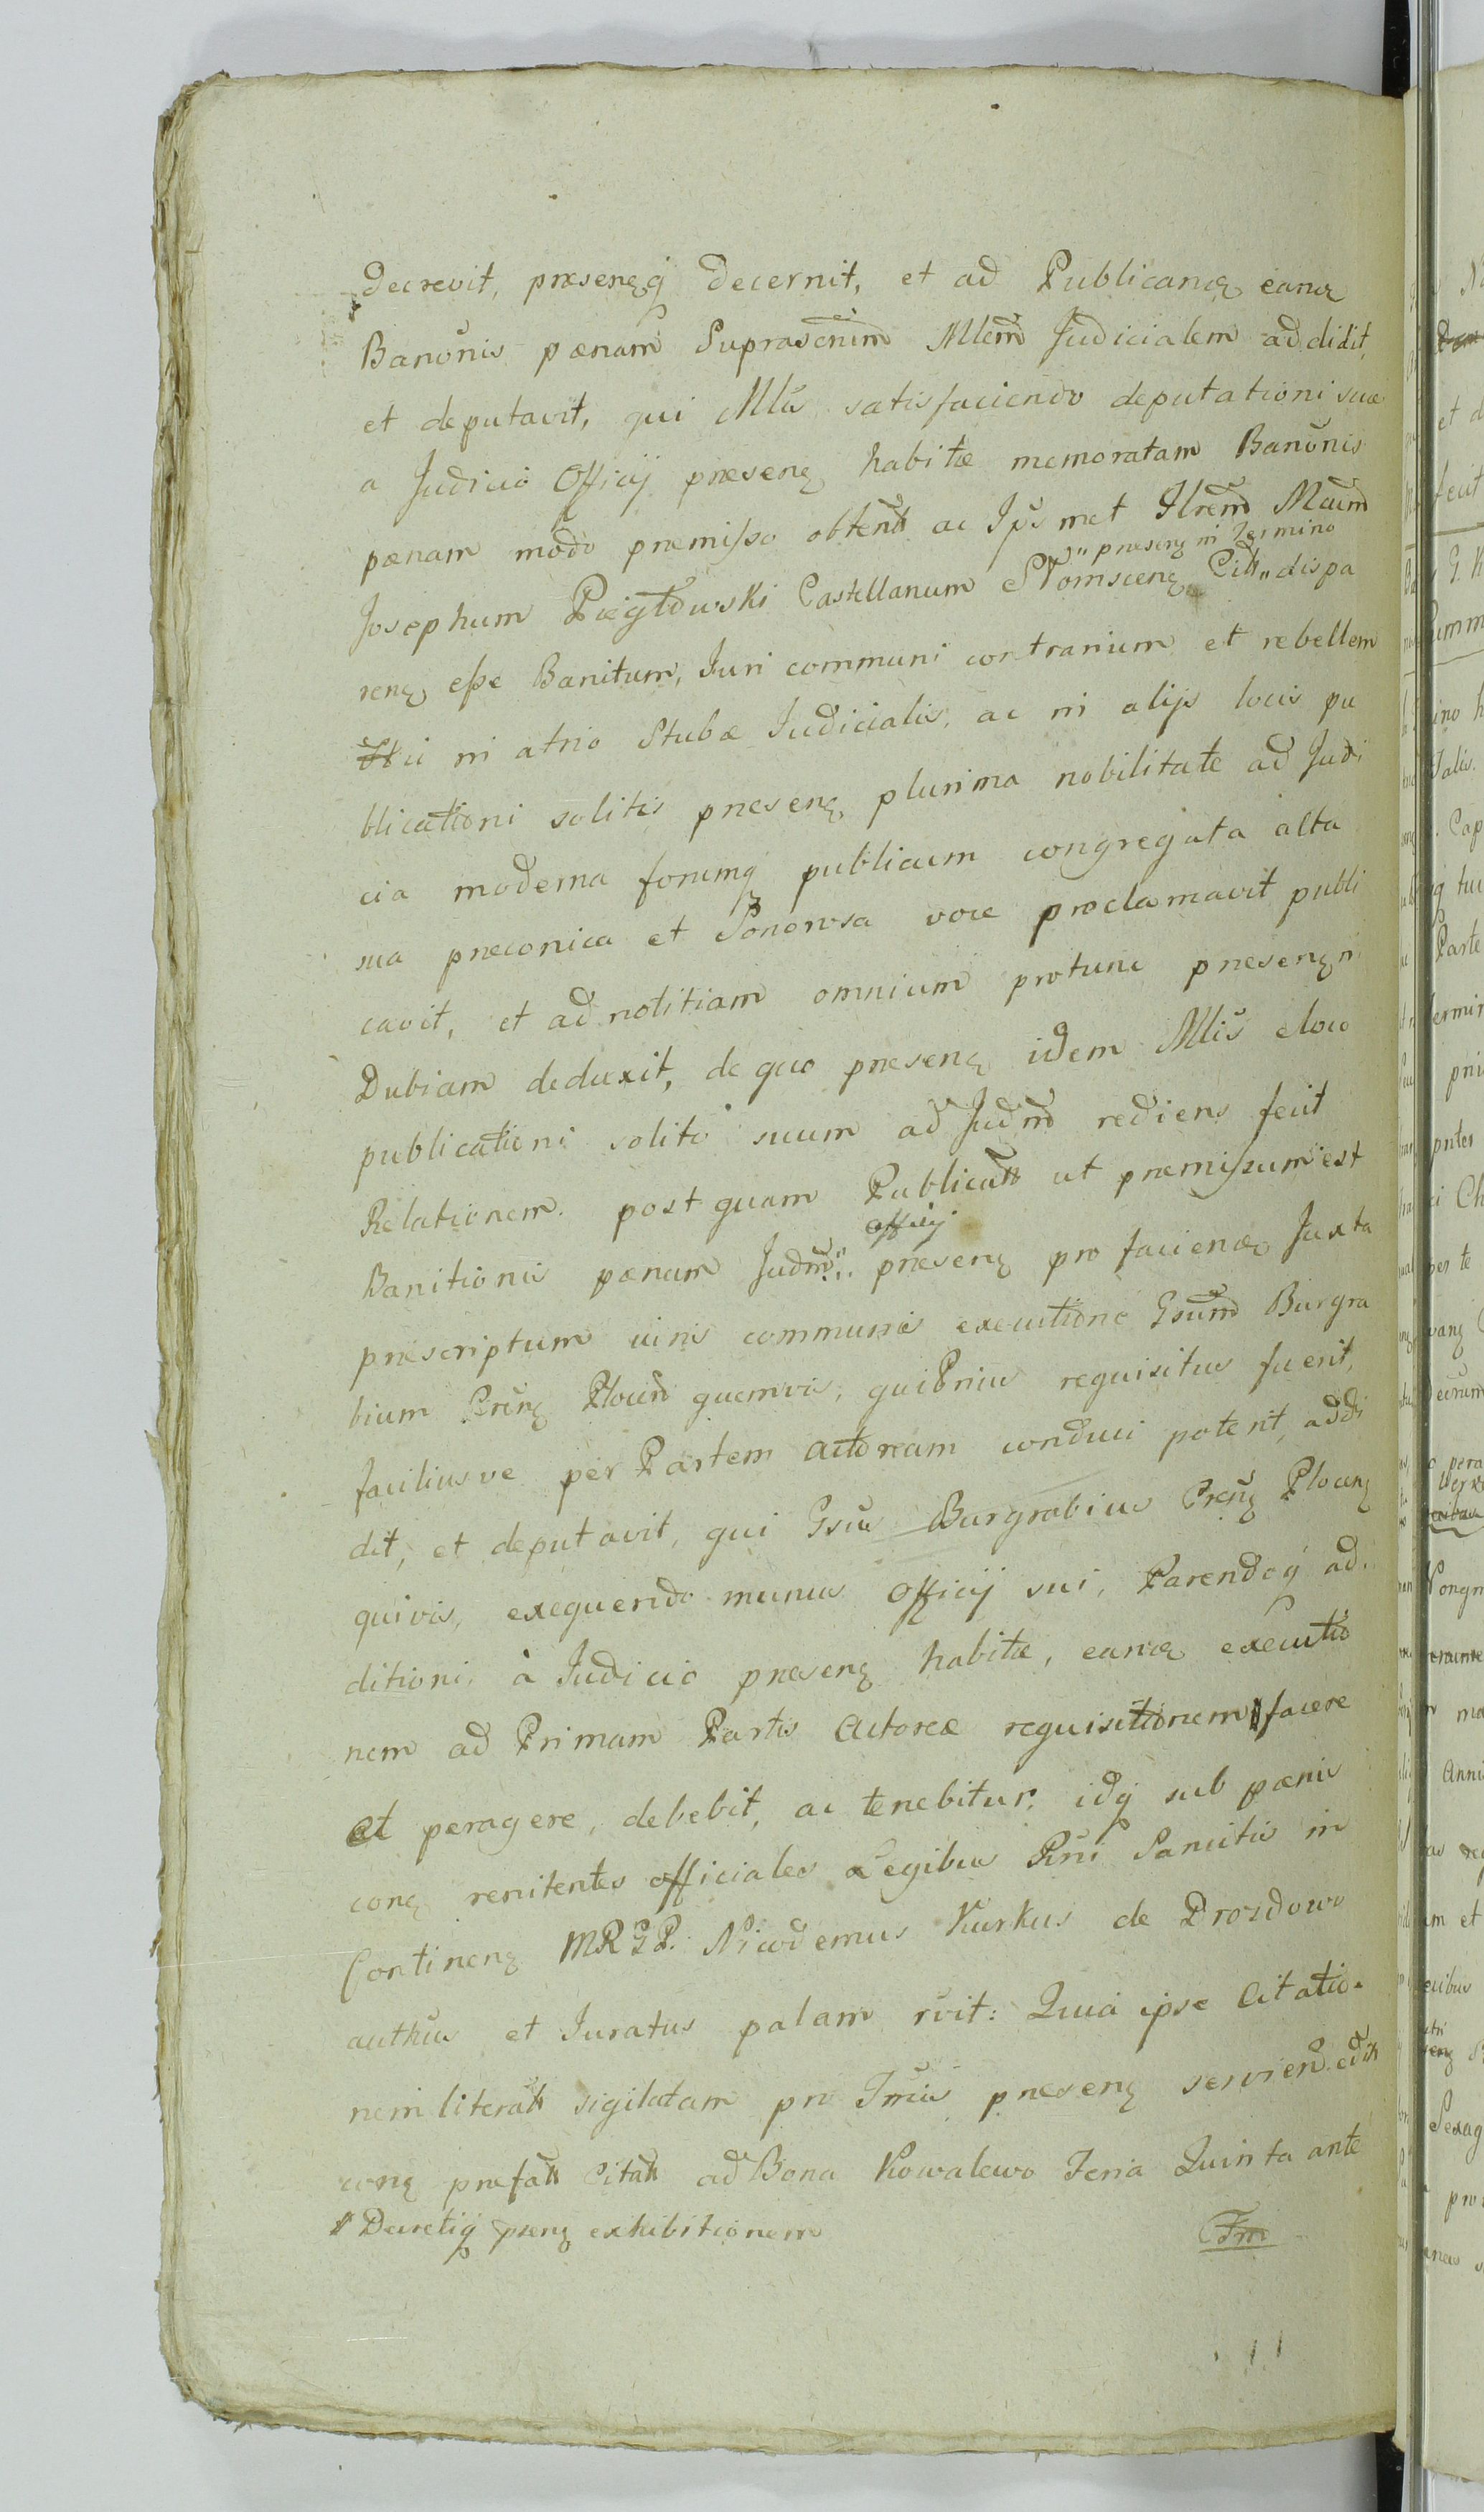 decrevit, præsenqꝫ decernit, et ad Publicanꝫ eanꝫ
Banōnis pænam Suprascrīum Mlēm Judicialem addidit,
et deputavit, qui Mlis satisfaciendo deputationi suæ
a Judicio Officij præsenꝫ habitæ memoratam Banōnis
pænam modo præmisso obtenᵗ ac Ips met Ilrēm Mcum
" præsenꝫ in Termino
Josephum Pięgłowski Castellanum Citt " dispa
renꝫ esse Banitum, Juri communi contrarium et rebellem
in atrio Stubæ Judicialis, ac in alijs locis pu
blicationi solitis præsenꝫ plurima nobilitate ad Judi
cia moderna forumqꝫ publicum congregata alta
sua præconica et Sonorosa voce proclamavit publi
cavit, et ad notitiam omnium protunc præsenꝫ in
Dubiam deduxit, de quo præsenꝫ idem Mlis e loco
publicationi solito suum ad Judm rediens fecit
Relationem. post quam Publicatt ut præmissum est
officij
Banitionis pænam Judm " præsenꝫ pro faciendꝫ Juxta
præscriptum juris communis executione Gsum Burgra
bium Crenꝫ Plocen quemvis, qui Prius requisitus fuerit,
faciliusve per Partem actoream conduci poterit, addi
dit, et deputavit, qui Gsus Burgrabius Crenꝫ Plocenꝫ
quivis, exequendo munus officij sui, Parendoqꝫ ad
ditioni à Judicio præsenꝫ habitæ, eanꝫ executio
nem ad Primam Partis Actoreæ requisitionem facere
et peragere, debebit, ac tenebitur, idqꝫ sub pænis
conꝫ renitentes officiales Legibus Rni Sancitis in
Continenꝫ MRGP. Nicodemus Kurkus de Drozdowo
authus et Juratus palam rvit: Quia ipse Citatio
nem literatt sigilatam pro Tmis præsenꝫ servien editt
conꝫ præfatt Citatt ad Bona Kowalewo Feria Quinta ante
# Decretiqꝫ psenꝫ exhibitionem
Fm